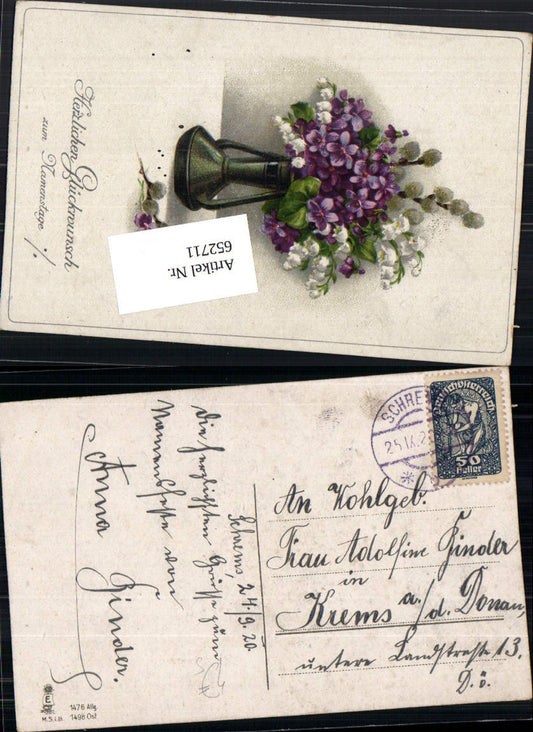 Herzlichen Glückwunsch
zum Namenstage ./.
Artikel Nr.
652711
Schrems, 24./9. 20.
Die herzlichsten Grüße zum
Namensfeste von
Anna Zinder.
SCHRE
25.IX.2
Deutschösterreich
50
Heller
An Wohlgeb.
Frau Adolfine Zinder
in
Krems a./d. Donau,
untere Landstraße 13.
D.ö.
E
M.S.i.B.
1476 Allg
1498 Ost